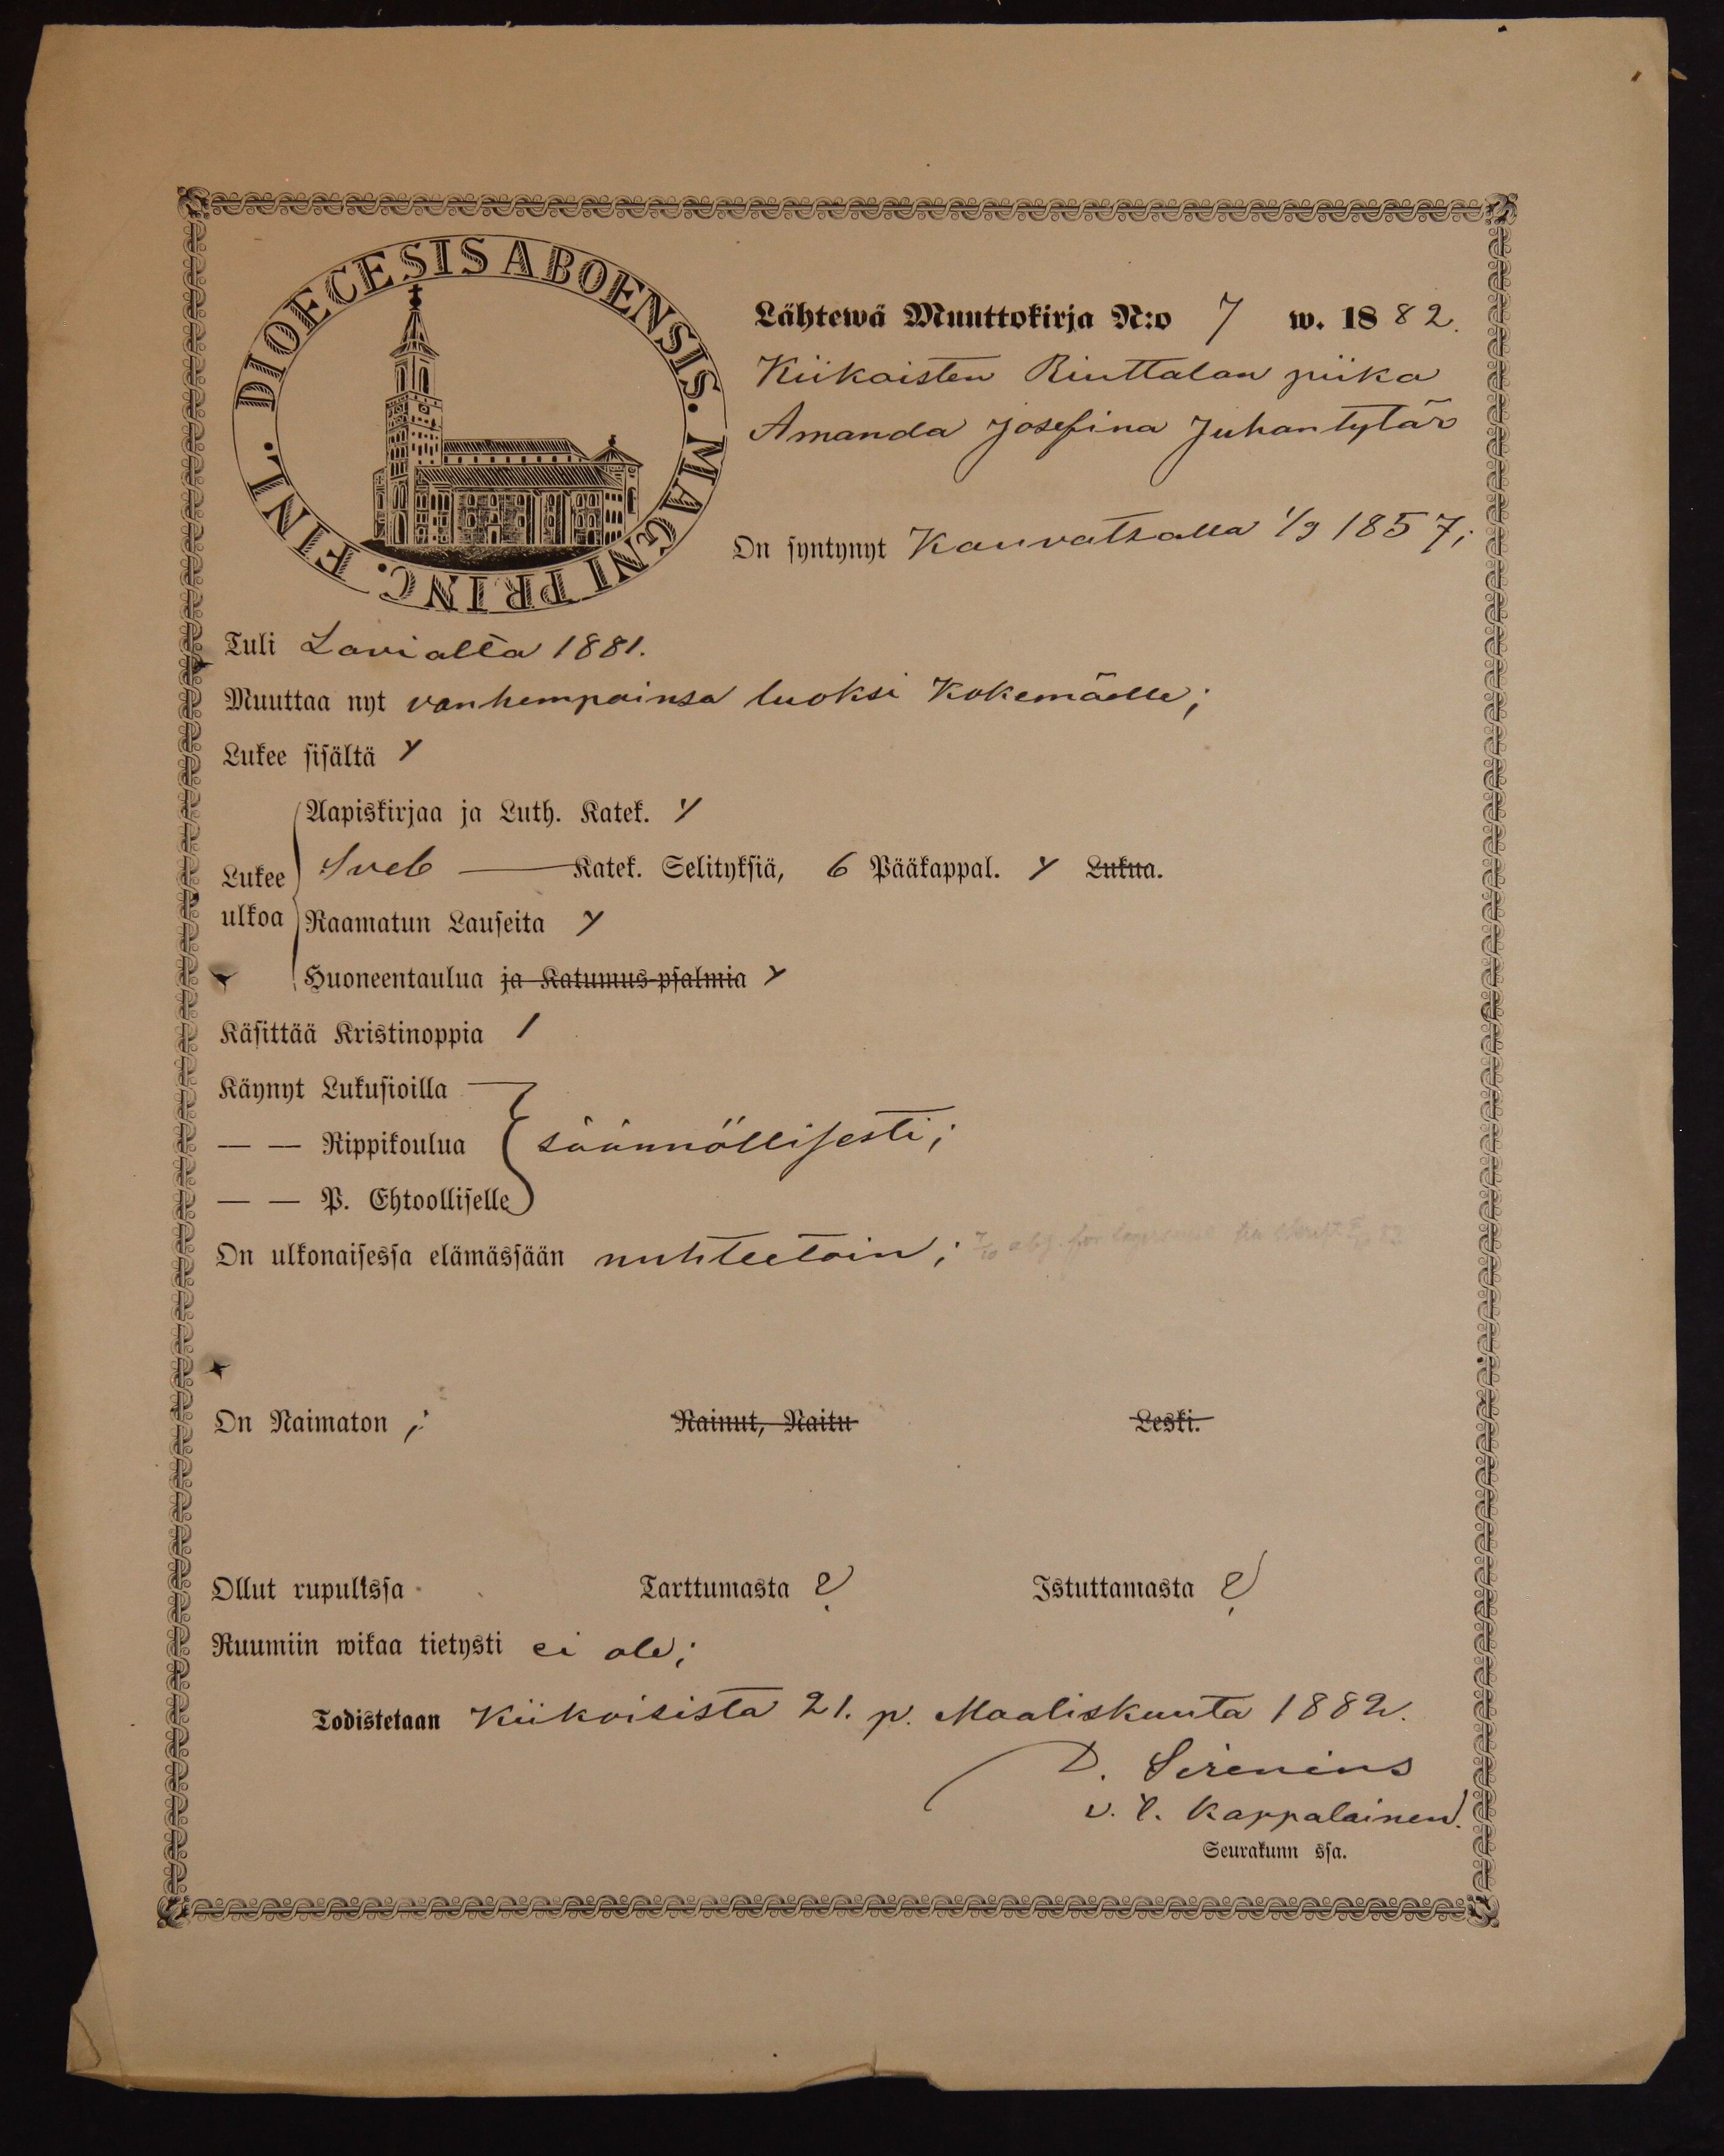 DIOECESIS ABOENSIS. MAGNI PRINC. FINL.
Lähtewä Muuttokirja N:o 7 w. 1882.
Kiikoisten Rinttalan piika
Amanda Josefina Juhantytär
On syntynyt Kauvatsalla 1/9 1857;
Tuli Lavialta 1881.
Muuttaa nyt vanhempainsa luoksi Kokemäelle;
Lukee sisältä y
Aapiskirjaa ja Luth. Katek. y
Sveb — Katek. Selityksiä, 6 Pääkappal. y Lukua.
Lukee
ulkoa
Raamatun Lauseita y
Huoneentaulua ja Katumus-psalmia y
Käsittää Kristinoppia /
Käynyt Lukusioilla —
— — Rippikoulua säännöllisesti;
— — P. Ehtoolliselle
On ulkonaisessa elämässään nuhteetoin;
On Naimaton ; Nainut, Naitu Leski.
Ollut rupulissa Tarttumasta ? Istuttamasta ?
Ruumiin wikaa tietysti ei ole;
Todistetaan Kiikoisista 21. p. Maaliskuuta 1882.
D. Sirenius
v. t. Kappalainen.
Seurakunn ssa.